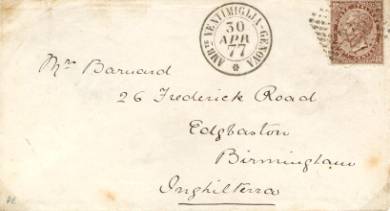 AMB.TE VENTIMIGLIA-GENOVA
30
APR
77
Mrs Barnard
26 Frederick Road
Edgbaston
Birmingham
Inghilterra